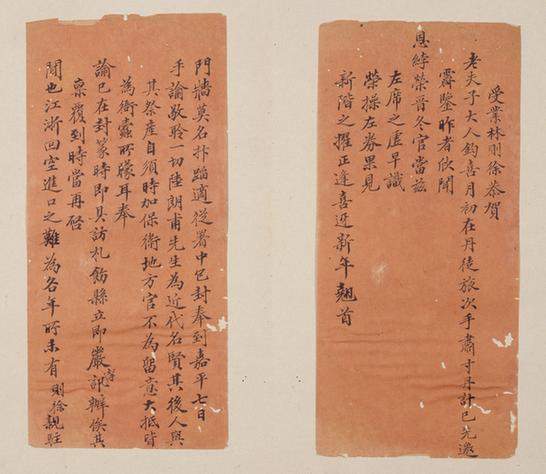 受業林則徐恭賀
老夫子大人鈞喜月初在丹徒旅次手肅寸丹計已先邀
霽鑒昨者欣聞
恩綍榮晉冬官當茲
左席之虛早識
榮操左券果見
新階之擢正逢喜近新年翹首
門牆莫名抃蹈適從署中包封奉到嘉平七日
手諭敬聆一切陸朗甫先生為近代名賢其後人與
其祭產自須時加保衛地方官不為留意大抵皆
為衙蠹所朦耳奉
諭已在封篆時即具訪札飭縣立即嚴究訊辦俟其
稟覆到時當再啓
聞也江浙回空進口之難為各年所未有則徐親駐